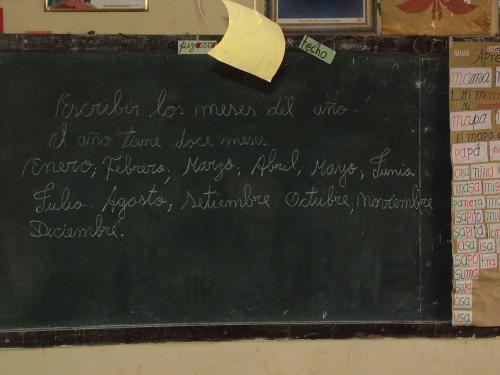 pizarra
techo
Escribir los meses del año.
El año tiene doce meses.
Enero, Febrero, Marzo, Abril, Mayo, Junio
Julio. Agosto, setiembre Octubre, noviembre
Diciembre.
mama
mapa
El mapa
papá
pasa
masa
panera
sapito
sapita
asa
sapo
suma
sopa
osa
usa